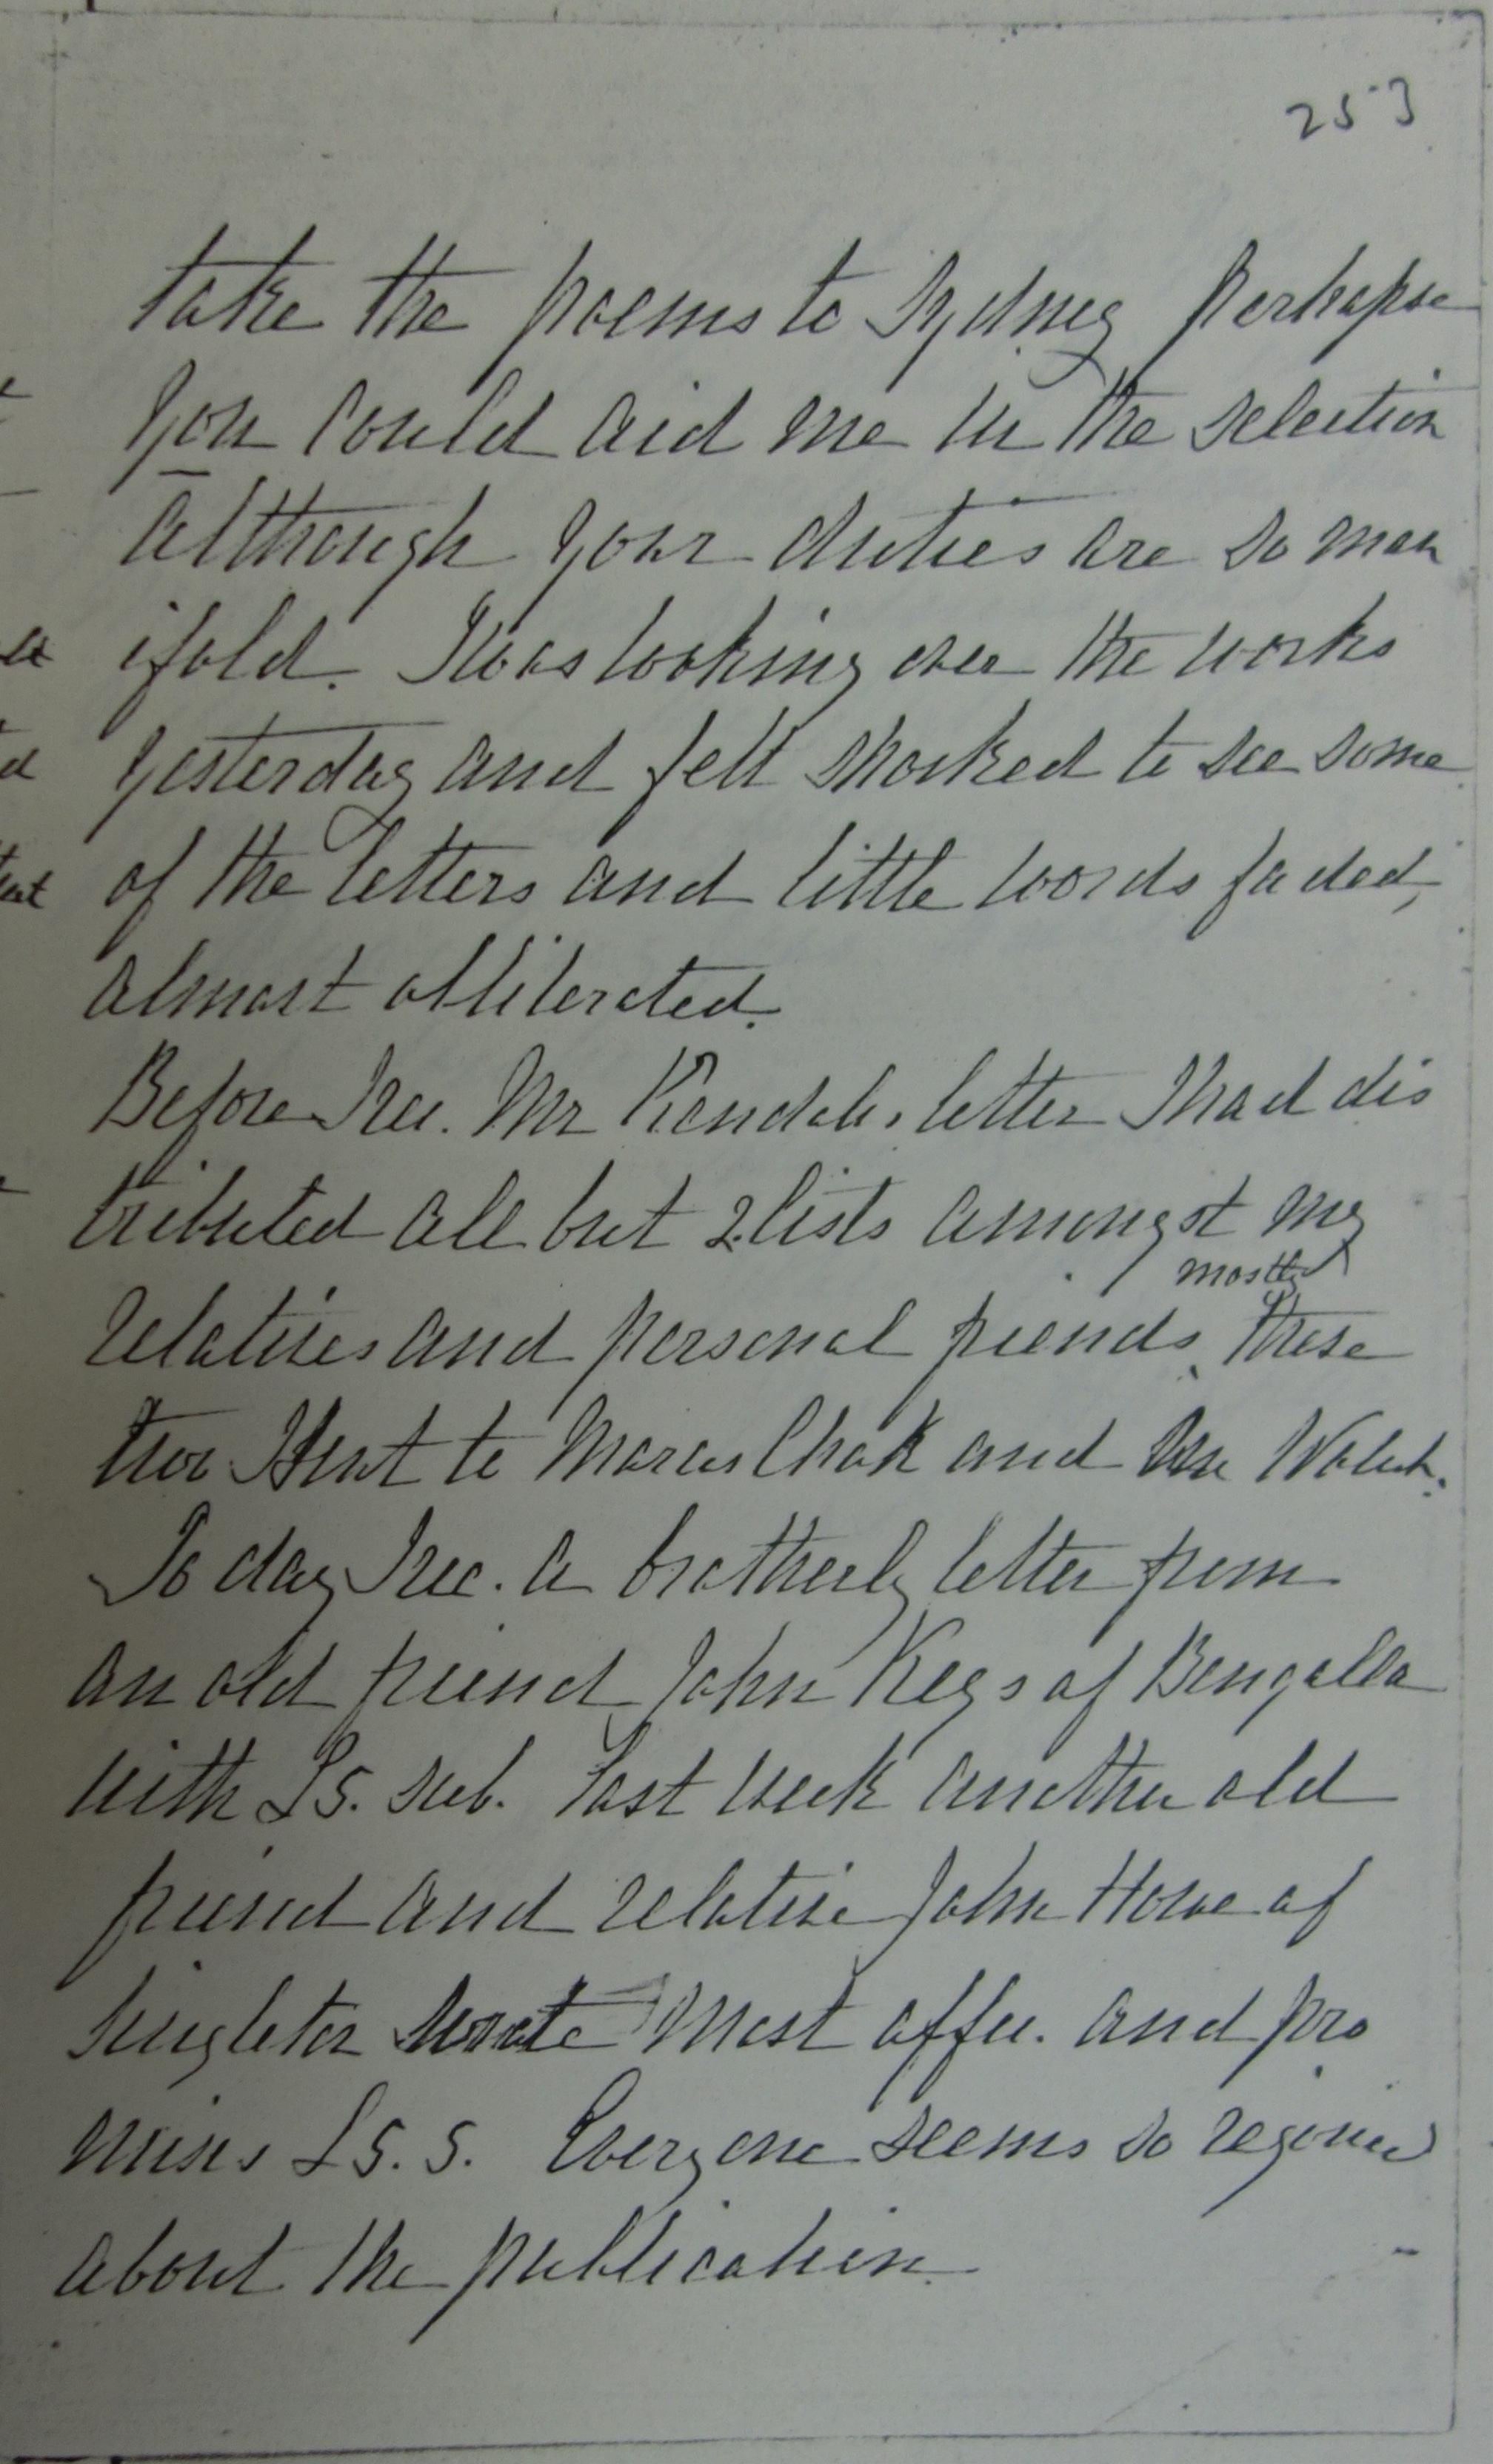 253
take the poems to Sydney perhapse
you could aid me in the selection
although your duties are so man
ifold. I was looking over the works
yesterday and felt shocked to see some
of the letters and little words faded,
almost obliterated.
Before I rec. Mr Kendals letter I had dis
tributed all but 2 lists amongst my
mostly
relatives and personal friends, these
two I sent to Marcus Clark and Mr Walch.
To day I rec. a brotherly letter from
an old friend John Keys of Bengalla
with £5. sub. Last week another old
friend and relative John Howe of
Singleton wrote most affec. and pro
mises £5. S. Every one seems so rejoiced
about the publication.